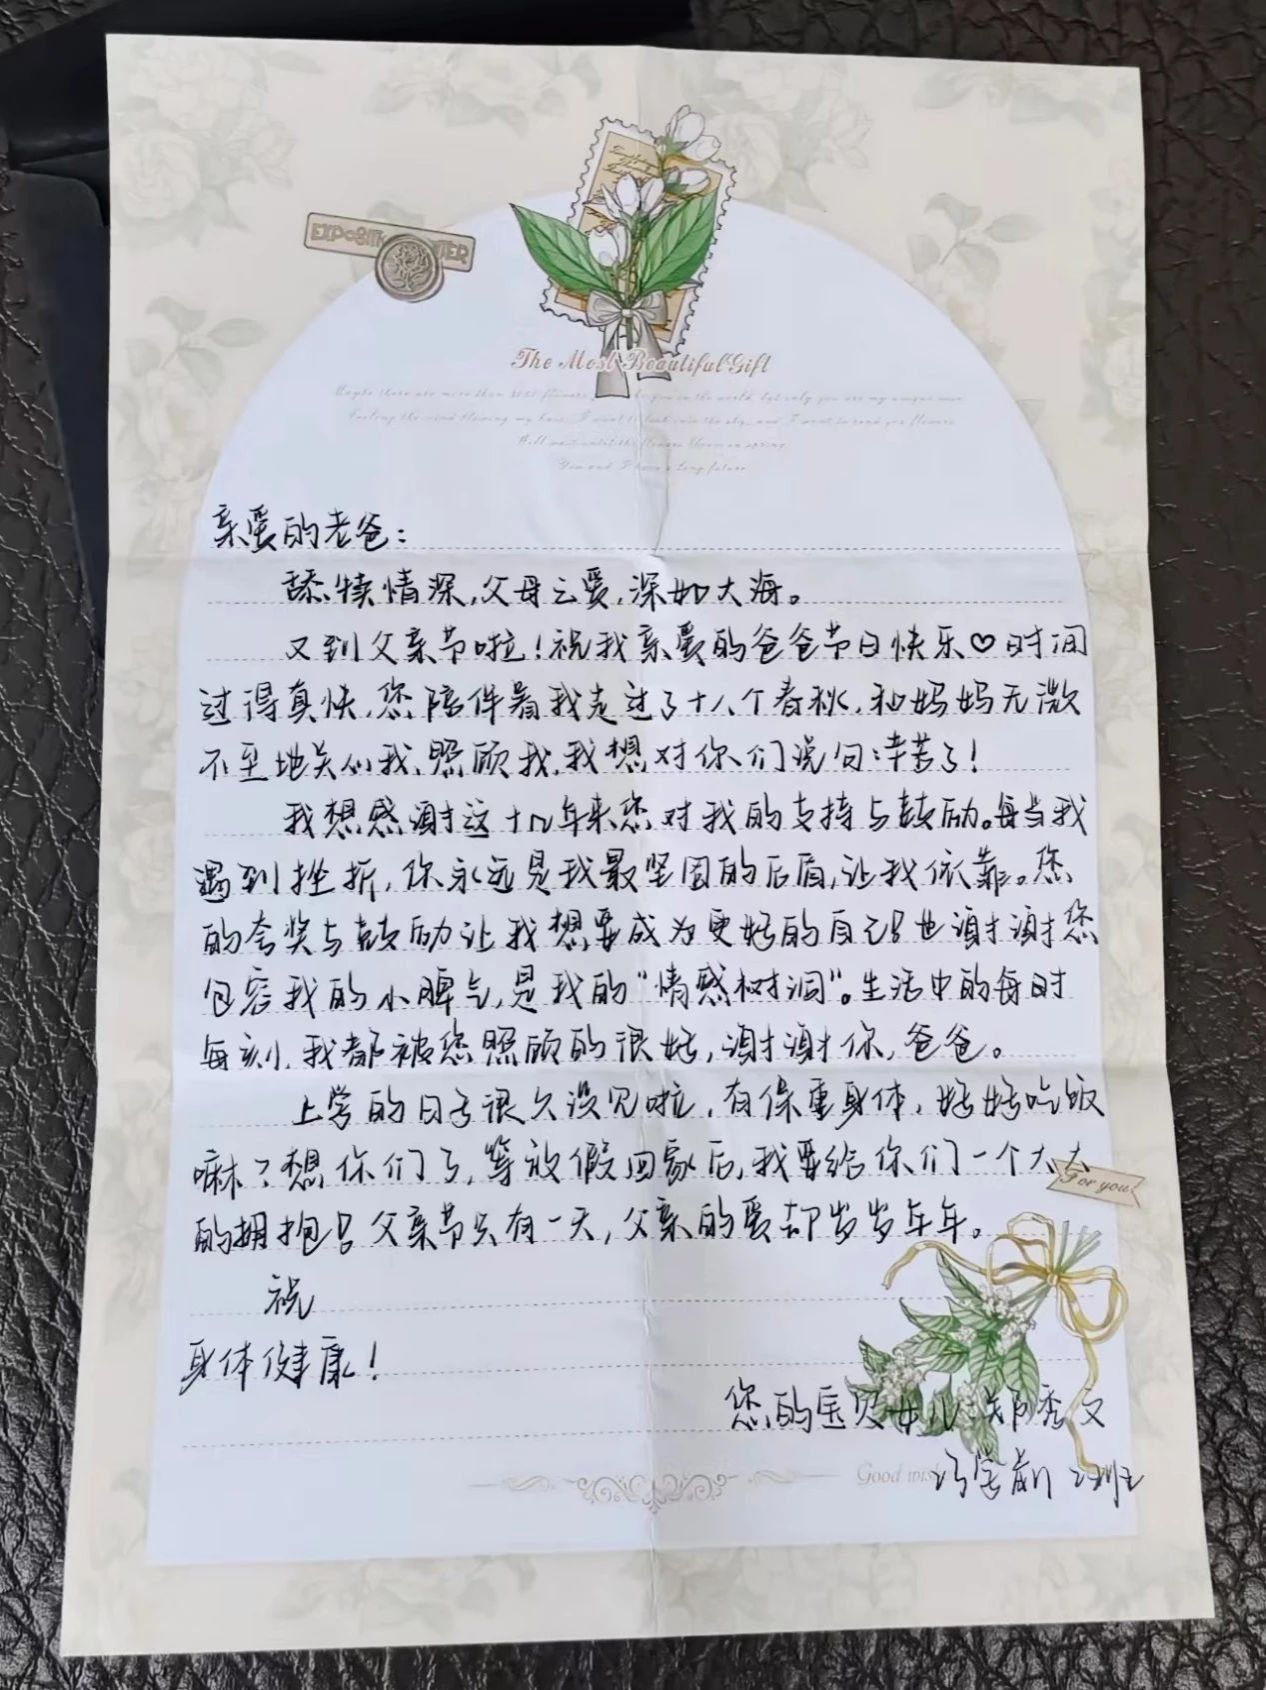 EXPOSIT
TER
The Most Beautiful Gift
亲爱的老爸：
舐犊情深，父母之爱，深如大海。
又到父亲节啦！祝我亲爱的爸爸节日快乐♡时间
过得真快，您陪伴着我走过了十八个春秋，和妈妈无微
不至地关心我、照顾我，我想对你们说句：辛苦了！
我想感谢这十几年来您对我的支持与鼓励。每当我
遇到挫折，你永远是我最坚固的后盾，让我依靠。您
的夸奖与鼓励让我想要成为更好的自己！也谢谢您
包容我的小脾气，是我的“情感树洞”。生活中的每时
每刻，我都被您照顾的很好，谢谢你，爸爸。
上学的日子很久没见啦，有保重身体，好好吃饭
嘛？想你们了，等放假回家后，我要给你们一个大大
的拥抱！父亲节只有一天，父亲的爱却岁岁年年。
For you
祝
身体健康！
您的宝贝女儿：郑秀文
Good wish
2班